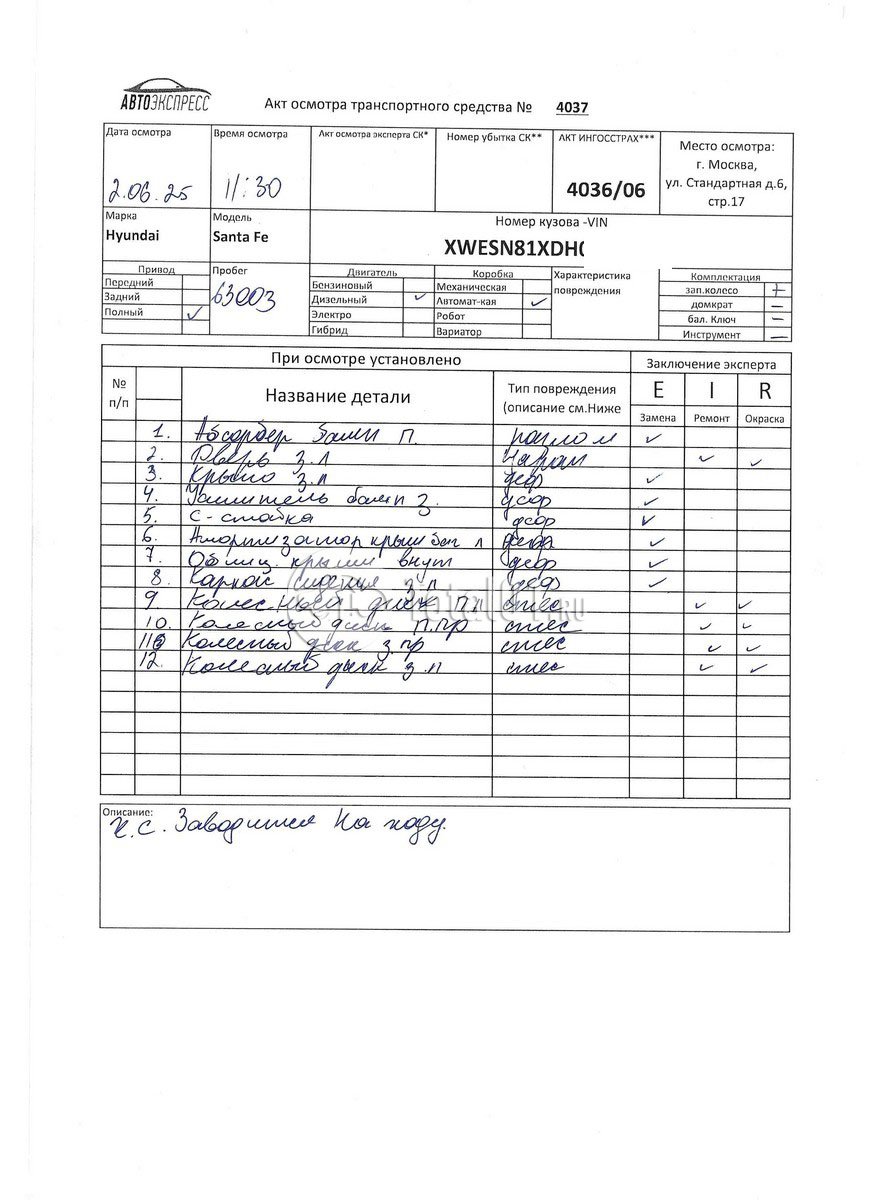 АВТОЭКСПРЕСС
Акт осмотра транспортного средства № 4037
Дата осмотра Время осмотра Акт осмотра эксперта СК* Номер убытка СК** АКТ ИНГОССТРАХ*** Место осмотра:
г. Москва,
ул. Стандартная д.6,
стр.17
2.06.25 11:30 4036/06
Марка Модель Номер кузова -VIN
Hyundai Santa Fe XWESN81XDH
Привод Пробег Двигатель Коробка Характеристика повреждения Комплектация
Передний 63003 Бензиновый Механическая зап.колесо +
Задний Дизельный ✓ Автомат-кая ✓ домкрат –
Полный ✓ Электро Робот бал. Ключ –
Гибрид Вариатор Инструмент –
При осмотре установлено Заключение эксперта
№ п/п Название детали Тип повреждения (описание см.Ниже E I R
Замена Ремонт Окраска
1. Абсорбер бамп п. разлом ✓
2. Дверь з.л царап ✓ ✓
3. Крыло з.л деф ✓
4. Усилитель бамп з. деф ✓
5. С-стойка деф ✓
6. Амортизатор крыш баг л деф ✓
7. Облиц. крыши внут деф ✓
8. Каркас сиденья з.л деф ✓
9. Колесный диск п.л стес ✓ ✓
10. Колесный диск п.пр стес ✓ ✓
11 Колесный диск з.пр стес ✓ ✓
12. Колесный диск з.л стес ✓ ✓
Total01.RU
Описание:
Т.С. Заводится На ходу.